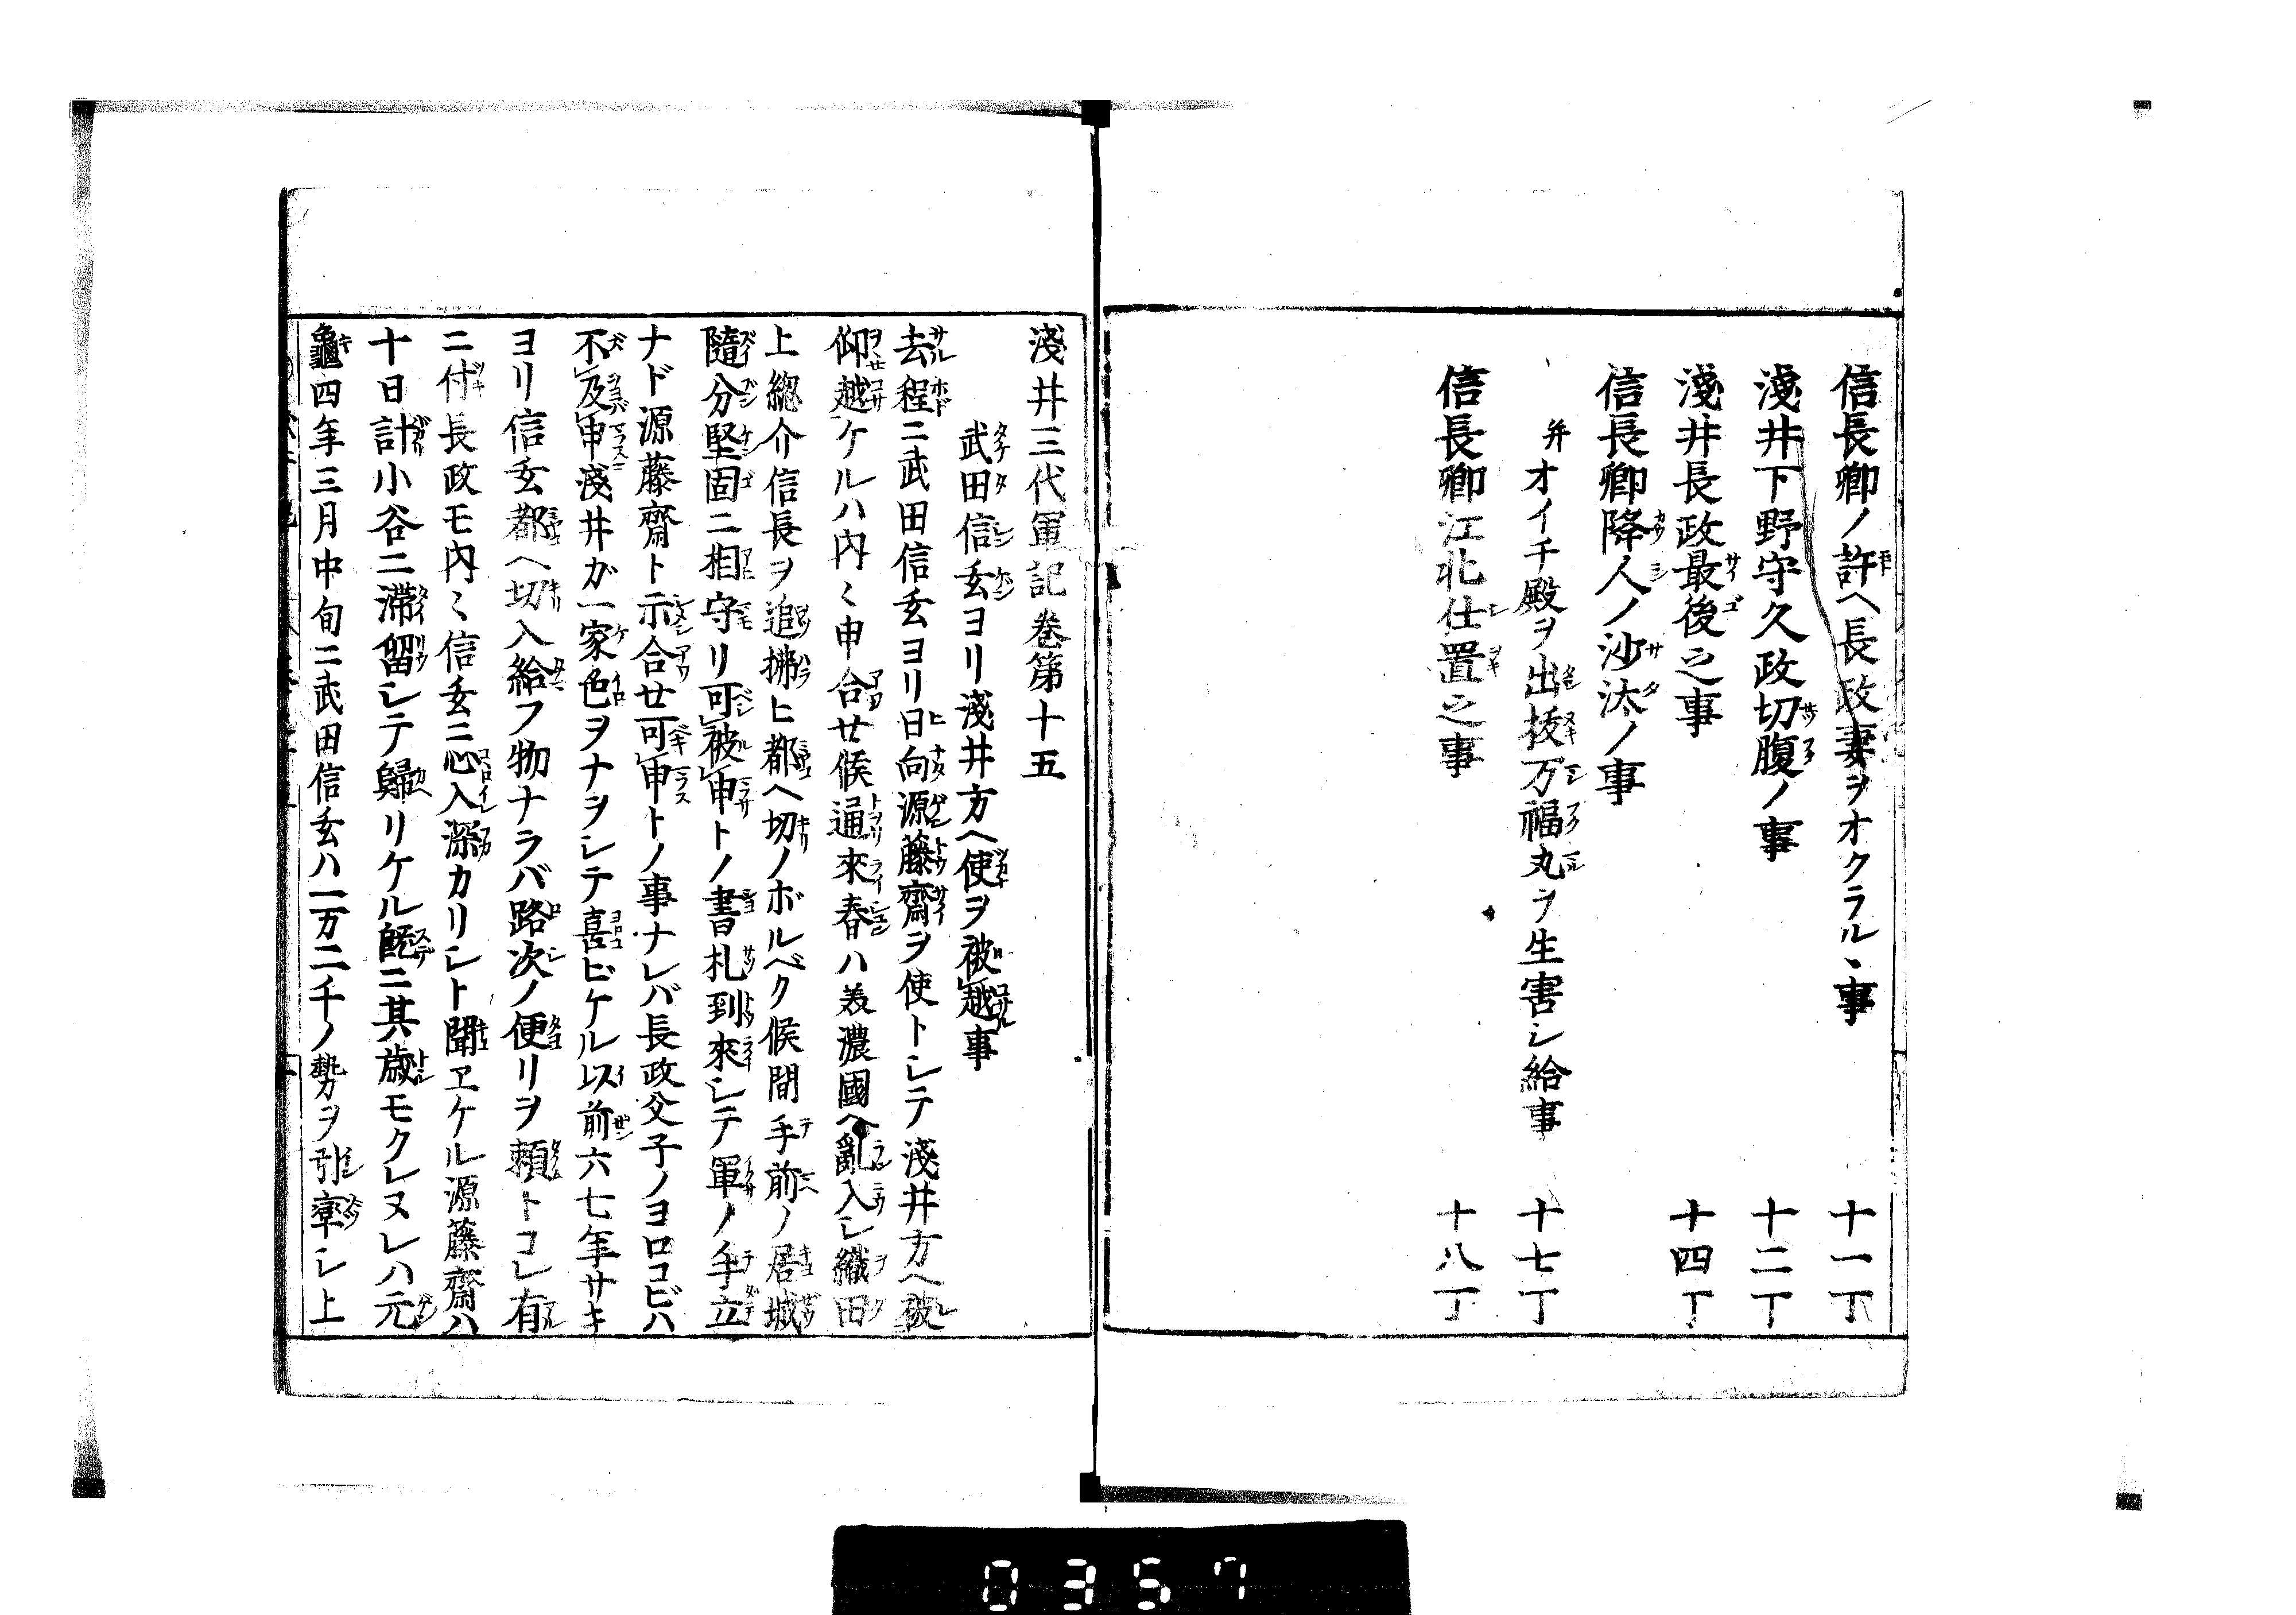 信長卿ノ許ヘ長政妻ヲオクラルヽ事　十一丁
淺井下野守久政切腹ノ事　十二丁
淺井長政最後之事　十四丁
信長卿降人ノ沙汰ノ事
幷オイチ殿ヲ出抜万福丸ヲ生害シ給事　十七丁
信長卿江北仕置之事　十八丁
淺井三代軍記卷第十五
武田信玄ヨリ淺井方ヘ使ヲ被越事
去程ニ武田信玄ヨリ日向源藤齋ヲ使トシテ淺井方ヘ被
仰越ケルハ内〻申合せ候通來春ハ美濃國ヘ亂入シ織田
上總介信長ヲ追拂ヒ都ヘ切ノボルベク候間手前ノ居城
隨分堅固ニ相守リ可被申トノ書札到來シテ軍ノ手立
ナド源藤齋ト示合せ可申トノ事ナレバ長政父子ノヨロコビハ
不及申淺井ガ一家色ヲナヲシテ喜ビケル以前六七年サキ
ヨリ信玄都ヘ切入給フ物ナラバ路次ノ便リヲ頼トコレ有
ニ付長政モ内〻信玄ニ心入深カリシト聞ヱケル源藤齋ハ
十日計小谷ニ滯留シテ歸リケル既ニ其歳モクレヌレハ元
龜四年三月中旬ニ武田信玄ハ一万二千ノ勢ヲ引率シ上
0357